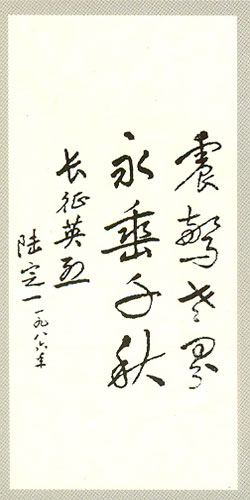 震驚世界
永垂千秋
长征英烈
陆定一一九八六年